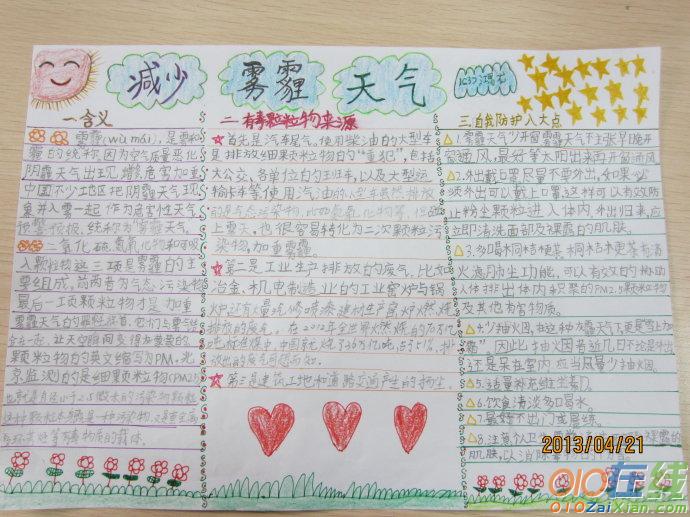 减少 雾霾 天气
一.含义
雾霾(wù mái),是雾和
霾的统称,因为空气质量恶化,
阴霾天气出现,增多危害加重
中国不少地区把阴霾天气现
象并入雾一起作为危害性天气
预警预报,统称为"雾霾天气。
二氧化硫、氮氧化物和可吸
入颗粒物这三项是雾霾的主
要组成,前两者为气态污染物
最后一项颗粒物才是加重
雾霾天气
颗粒物的英文缩写为PM,北
京监测的是细颗粒物(PM2.5)
二.有毒颗粒物来源
首先是汽车尾气。使用柴油的大型车
是排放细颗粒物的"重犯",包括
大公交、各单位的班车,以及大型运
输卡车等使用汽油的小型车虽然排放
的是气态污染物,
上雾天,也很容易转为二次颗粒污
染物,加重雾霾。
第二是工业生产排放的废气,比如
冶金、机电制造业的工业窑炉与锅
炉还有大量汽修喷漆、建材生产窑炉燃烧
排放的废气,
第三是建筑工地和道路交通产生的扬尘。
三.自我防护八大点
1."雾霾天气"少开窗雾霾天气不主张早晚开
窗通风,最好等太阳出来再开窗通风
2.外出戴口罩尽量不要外出,如果必
须外出可以戴上口罩,这样可以有效防
止粉尘颗粒进入体内。外出归来,应
立即清洗面部及裸露的肌肤。
3.多喝桐桔梗茶、桐桔梗茶有清
火滤肺尘功能,可以有效的协助
人体排出体内积聚的PM2.5颗粒物
及其他有害物质。
4.少抽火因,在这种灰霾天气下更是"雪上加
霜"。因此,抽火因者近几日不论是外出
还是呆在室内应当尽量少抽火因。
5.适量补充维生素D。
6.饮食清淡多喝水。
7.最好不出门或晨练。
8.注意
肌肤,以
2013/04/21
010在线
010ZaiXian.com